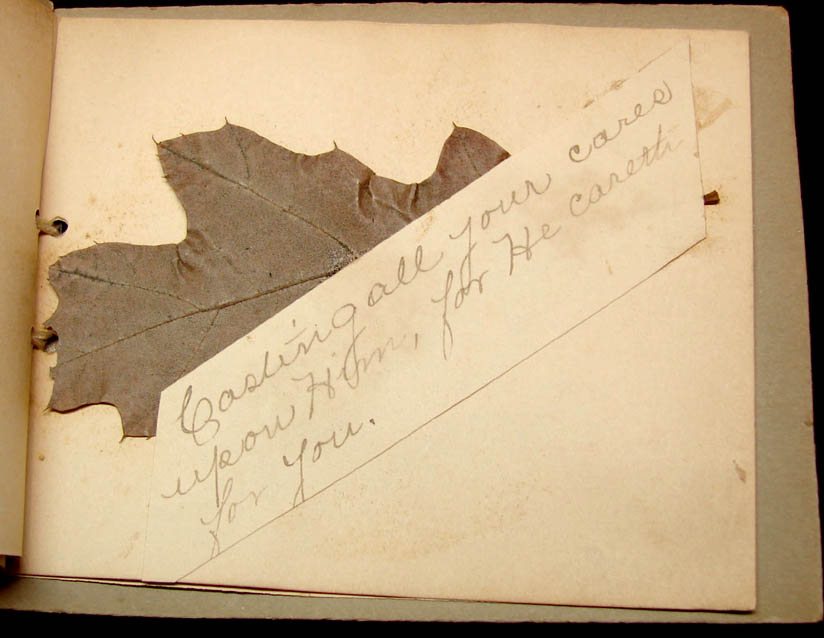 Casting all your cares
upon Him, for He careth
for you.